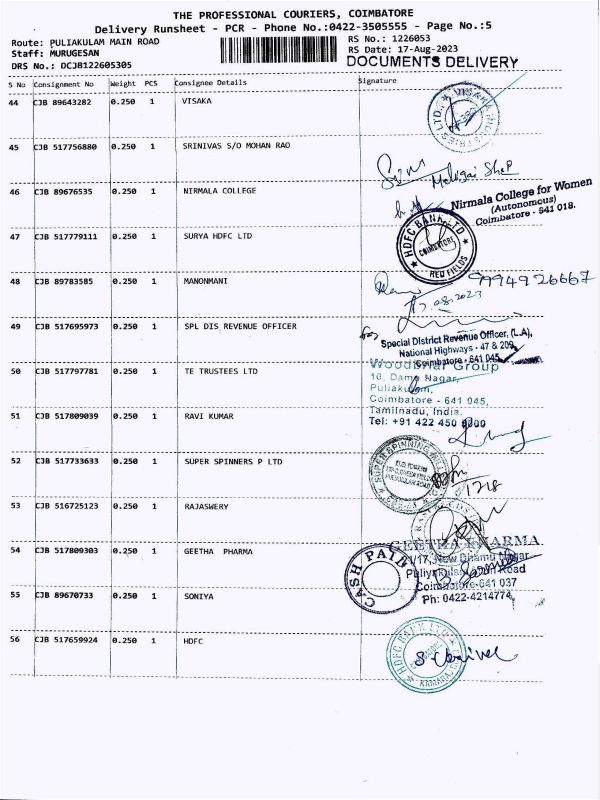 THE PROFESSIONAL COURIERS, COIMBATORE
Delivery Runsheet - PCR - Phone No.:0422-3505555 - Page No.:5
Route: PULIAKULAM MAIN ROAD
Staff: MURUGESAN
DRS No.: DCJB122605305
RS No.: 1226053
RS Date: 17-Aug-2023
DOCUMENTS DELIVERY
S No Consignment No Weight PCS Consignee Details Signature
44 CJB 89643282 0.250 1 VISAKA
45 CJB 517756880 0.250 1 SRINIVAS S/O MOHAN RAO
46 CJB 89676535 0.250 1 NIRMALA COLLEGE
Nirmala College for Women
(Autonomous)
Coimbatore - 641 018.
47 CJB 517779111 0.250 1 SURYA HDFC LTD
HDFC BANK LTD
COIMBATORE
RED FIELDS
48 CJB 89783585 0.250 1 MANONMANI
9994926667
17.08.2023
49 CJB 517695973 0.250 1 SPL DIS REVENUE OFFICER
for
Special District Revenue Officer, (L.A),
National Highways - 47 & 209,
Coimbatore - 641 045
50 CJB 517797781 0.250 1 TE TRUSTEES LTD
Group
Puliakulam,
Coimbatore - 641 045,
Tamilnadu, India.
Tel: +91 422 450 0000
51 CJB 517809039 0.250 1 RAVI KUMAR
52 CJB 517733633 0.250 1 SUPER SPINNERS P LTD
SUPER SPINNING MILLS
53 CJB 516725123 0.250 1 RAJASWERY
54 CJB 517809303 0.250 1 GEETHA PHARMA
GEETHA PHARMA
CASH PAID
Road
Coimbatore-641 037
Ph: 0422-4214774
55 CJB 89670733 0.250 1 SONIYA
56 CJB 517659924 0.250 1 HDFC
HDFC BANK LTD